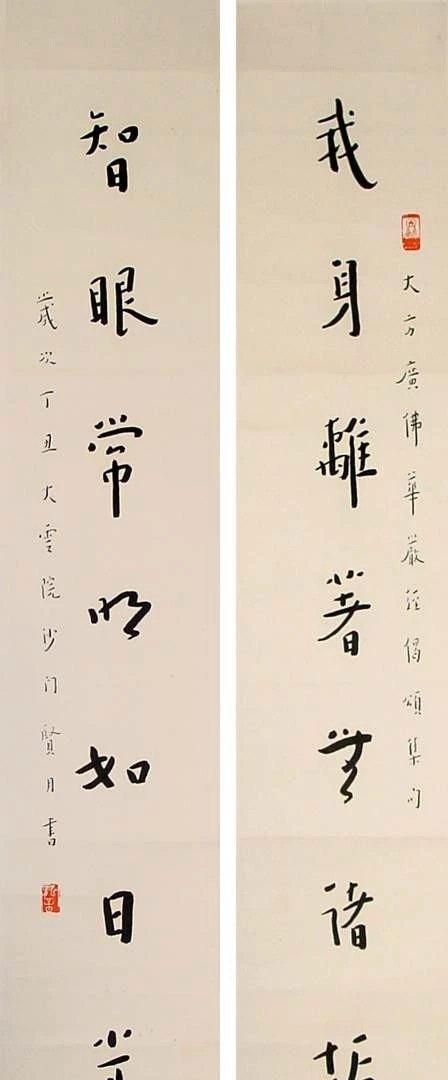 大方廣佛華嚴經偈頌集句
戒身離著無諸
智眼常明如日
歲次丁丑大雲院沙門賢月書